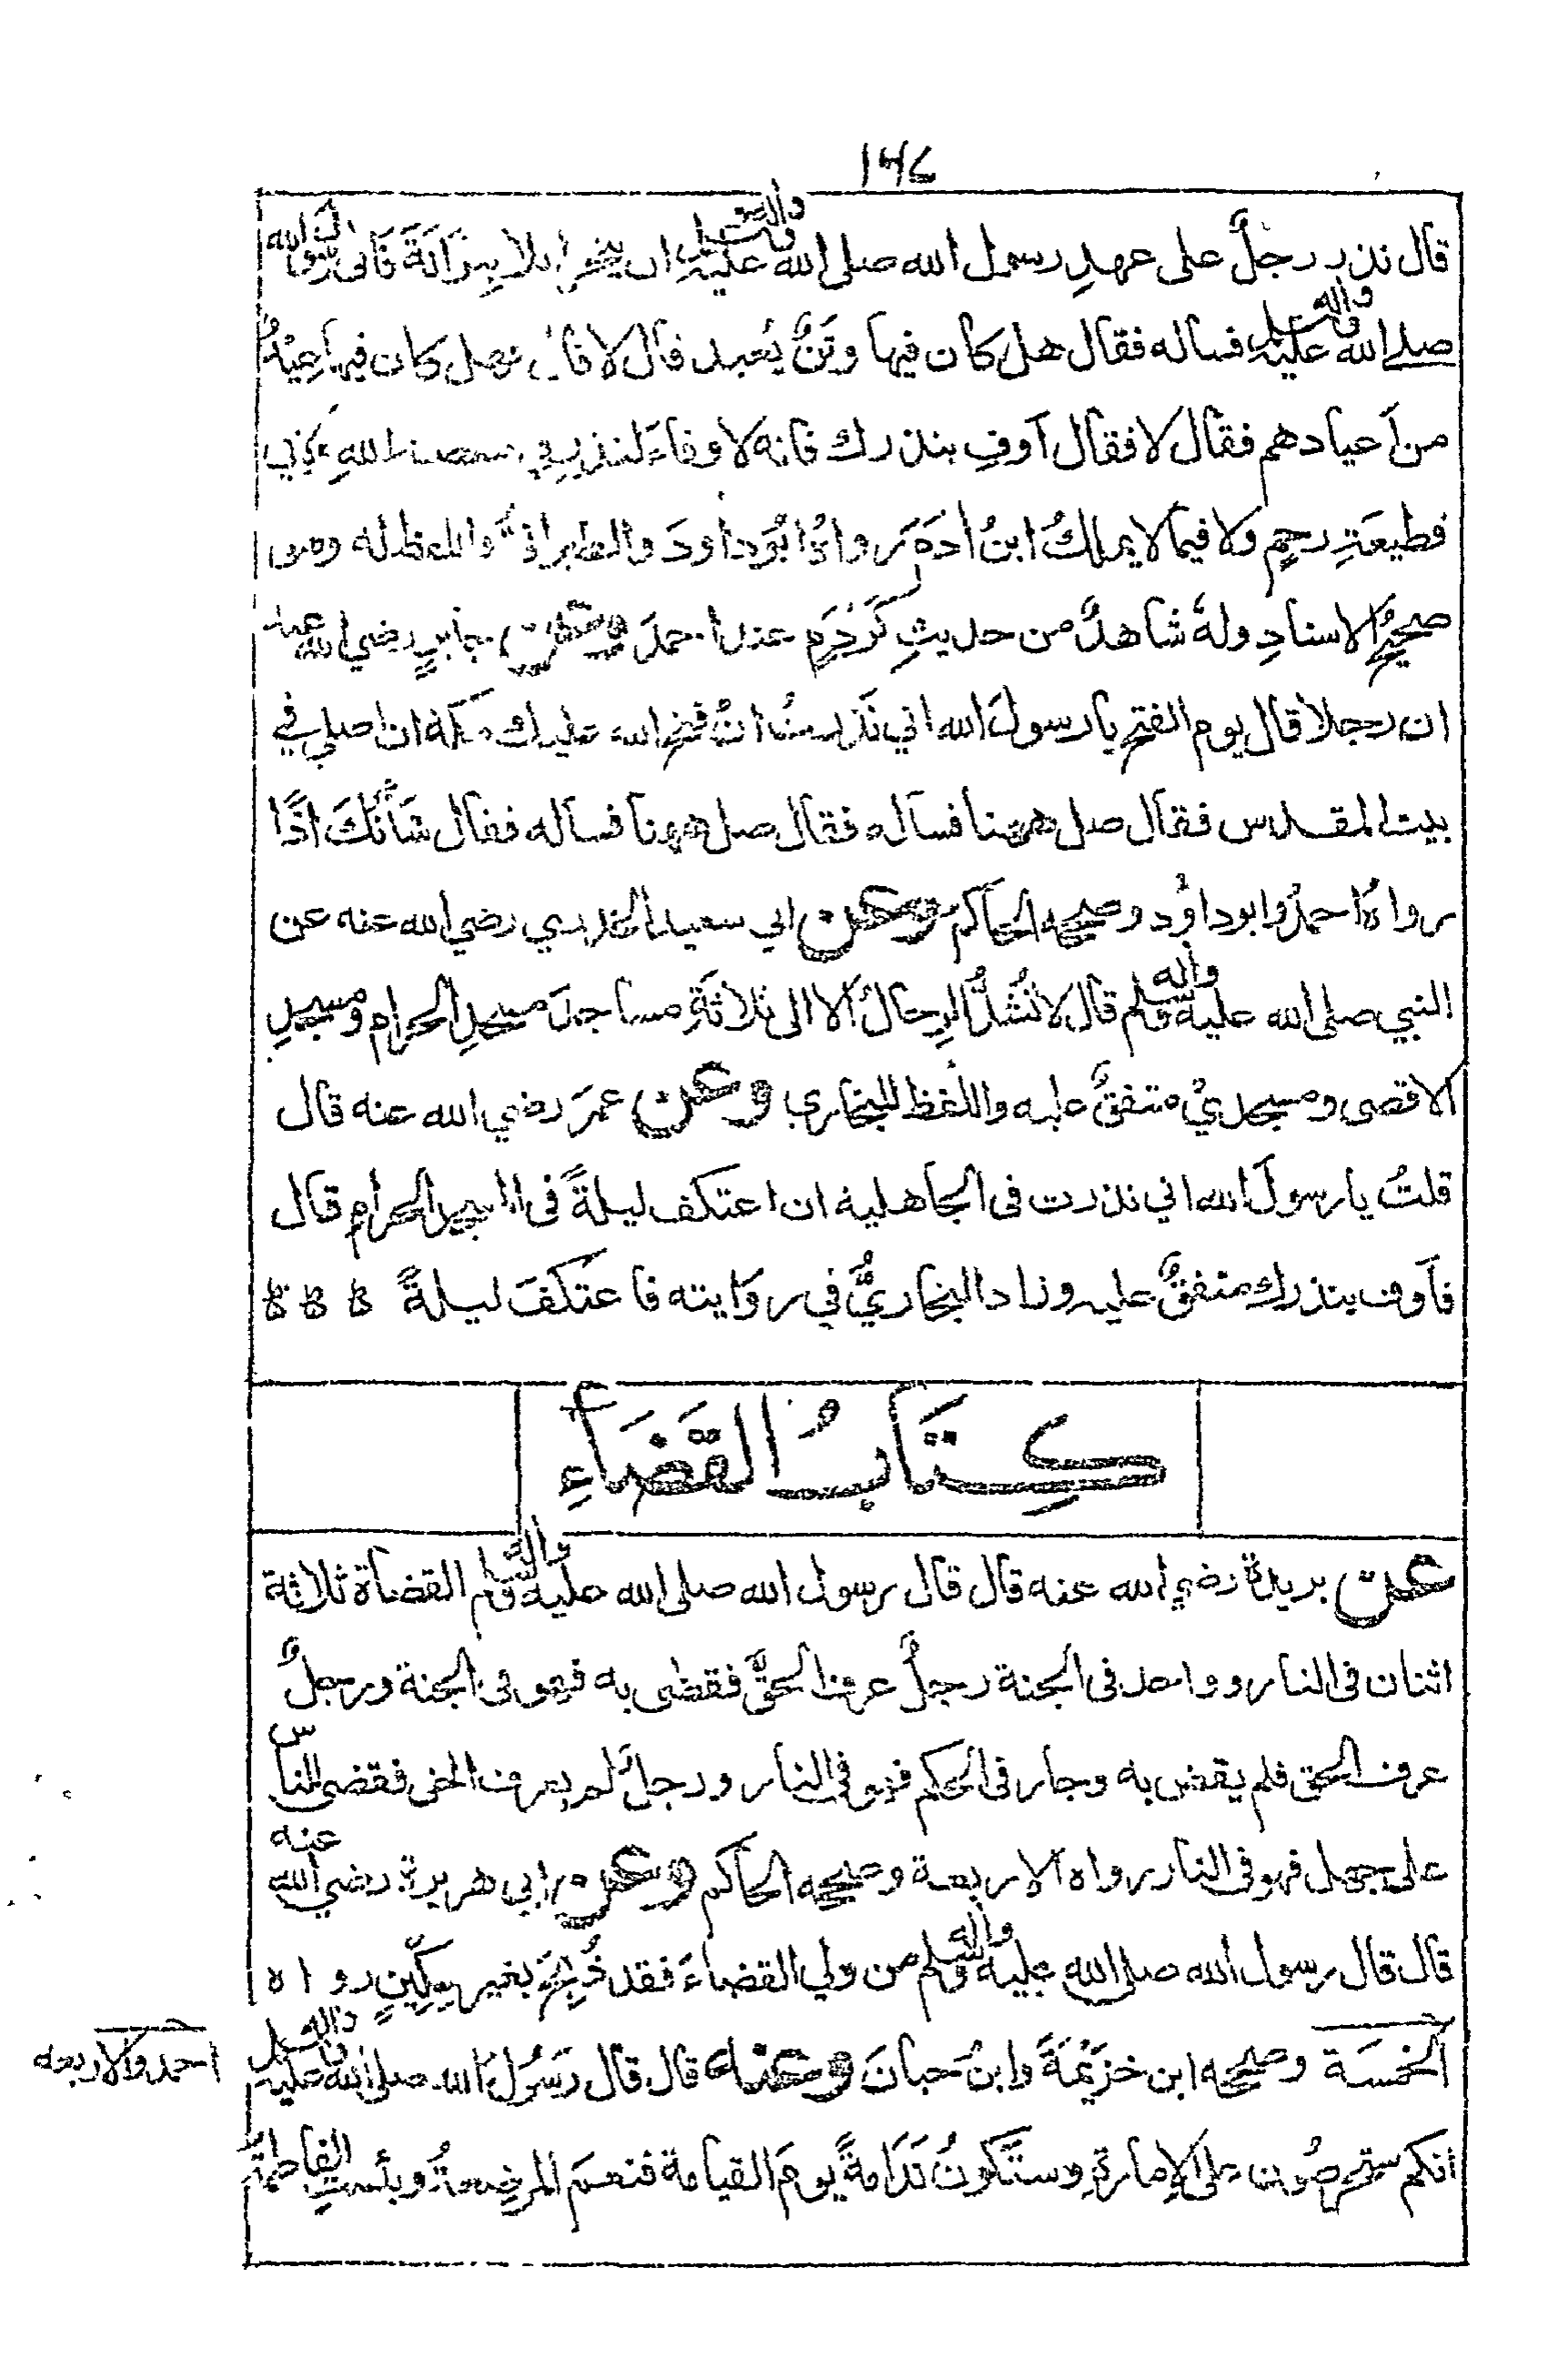 ١٣٦
قال نذر رجلٌ على عهدِ رسول الله صلى الله عليه واله وسلم ان ينحر ابلا ببوانَةَ فَاتى رسول الله
صلى الله عليه واله وسلم فساله فقال هل كان فيها وثنٌ يُعبد قال لا قال فهل كان فيها عيدٌ
من اَعيادهم فقال لا فقال اَوفِ بنذرك فانه لا وفاءَ لنذر في معصية اللهِ ولا في
قطيعَةِ رحمٍ ولا فيما لا يملكُ ابنُ اٰدَم رواهُ ابُو داودَ والطبرانيُّ واللفظ له وهو
صحيحُ الاسنادِ ولهُ شاهدٌ من حديثِ كَرْدَمٍ عند احمدَ وعن جابرٍ رضي الله عنه
ان رجلا قال يوم الفتح يا رسولَ الله اني نَذرتُ انْ فتح الله عليك مكة ان اصلي في
بيت المقدس فقال صل ههنا فسأله فقال صل ههنا فساله فقال شَأْنُكَ اذًا
رواهُ احمدُ وابو داوُد وصححه الحاكم وعن ابي سعيد الخدري رضي الله عنه عن
النبي صلى الله عليه واله وسلم قال لا تُشَدُّ الرِحالُ الا الى ثلاثَةِ مساجدَ مسجدِ الحرامِ ومسجدِ
الاقصى ومسجديْ متفقٌ عليه واللفظ للبخاري وعن عمرَ رضي الله عنه قال
قلتُ يا رسولَ الله اني نذرت في الجاهلية ان اعتكف ليلةً في المسجد الحرام قال
فاَوف بنذرك متفقٌ عليه وزاد البخاريُّ في روايته فاعتَكفَ ليلةً
كِتَابُ القَضَاءِ
عن بريدة رضي الله عنه قال قال رسول الله صلى الله عليه واله وسلم القضاة ثلاثة
اثنان في النار وواحد في الجنة رجلٌ عرف الحقَّ فقضى به فهو في الجنة ورجلٌ
عرف الحق فلم يقض به وجار في الحكم فهو في النار ورجلٌ لم يعرف الحق فقضى للناس
على جهل فهو في النار رواه الاربعة وصححه الحاكم وعن ابي هريرة رضي الله عنه
قال قال رسول الله صلى الله عليه واله وسلم من ولي القضاءَ فقد ذُبِحَ بغير سِكِّينٍ رواه
الخمسَة وصححه ابن خزَيْمَةَ وابنُ حبانَ وعنه قال قال رَسُولُ الله صلى الله عليه واله وسلم
احمد والاربعه
انكم ستحرصُون على الاِمارةِ وستَكُونُ نَدَامةً يومَ القيامة فنعمَ المرضعةُ وبئستِ الفاطمةُ